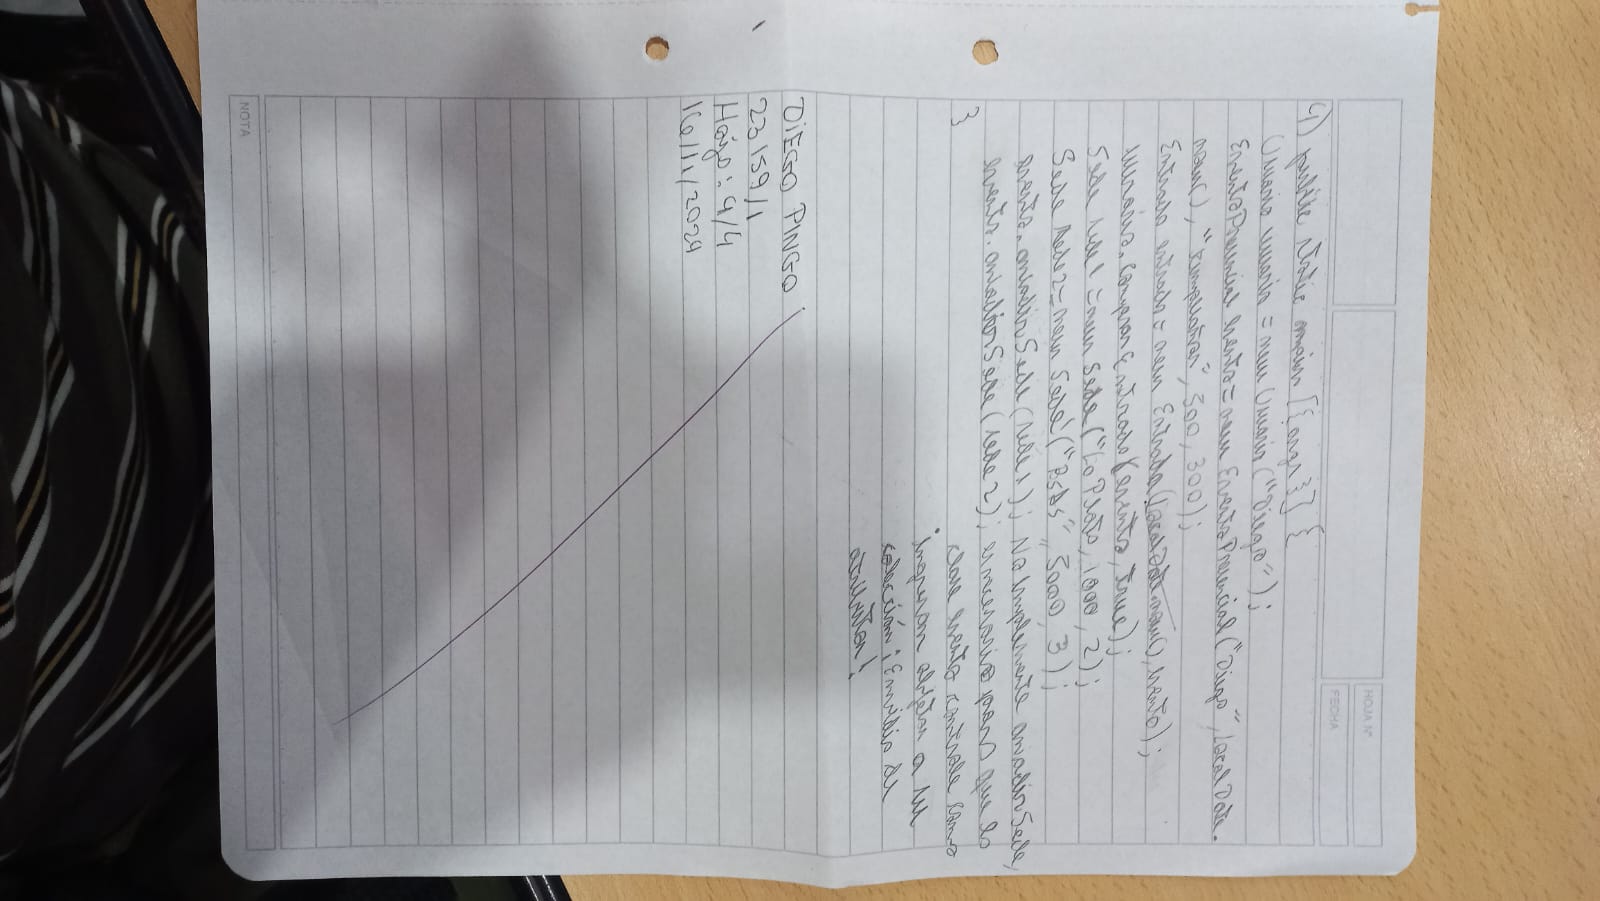 HOJA N°
FECHA
4) public static main [{args}] {
Usuario usuario = new Usuario("Diego");
EventoPresencial evento = new EventoPresencial("Diego", LocalDate.
now(), "Cumpleaños", 500, 300);
Entrada entrada = new Entrada(LocalDate.now(), evento);
usuario.comprarEntrada(evento, true);
Sede sede1 = new Sede("La Plata, 1000, 2);
Sede sede2 = new Sede("BsAs", 5000, 3);
evento.aniadirSede(sede1); No implemente aniadirSede,
evento.aniadirSede(sede2); es necesario para que la
}
clase evento controle como
ingresan objetos a su
colección ¡Envidia de
atributos!
DIEGO PINGO
23159/1
Hoja: 4/4
16/11/2024
NOTA